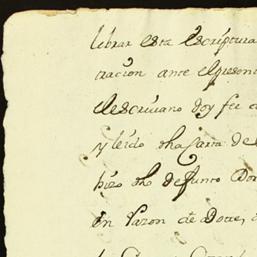 librar esta escriptura
tracion ante el presen
el escrivano doy fee
y leido dha carta de
hizo dho defunto Don
en razon de Dote,